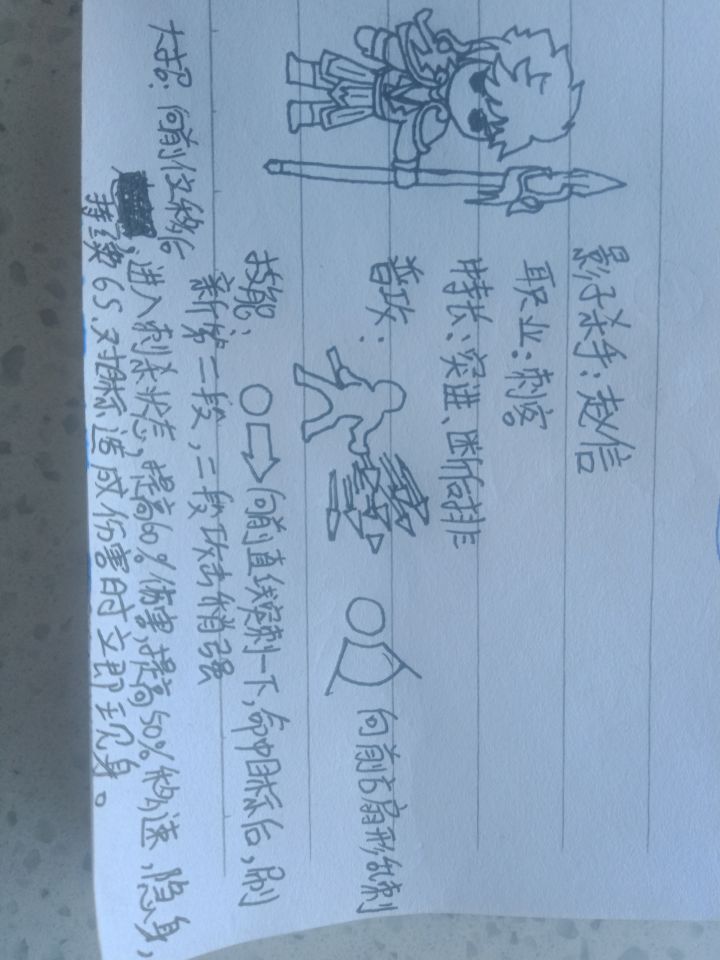 影子杀手：赵信
职业：刺客
特长：突进、断后排
普攻：
向前方扇形乱刺
技能：
向前直线突刺一下，命中目标后，刷
新第二段，二段攻击稍强
大招：向前位移后
进入刺杀状态，提高60%伤害，提高50%移速，隐身，
持续6S，对目标造成伤害时立即现身。